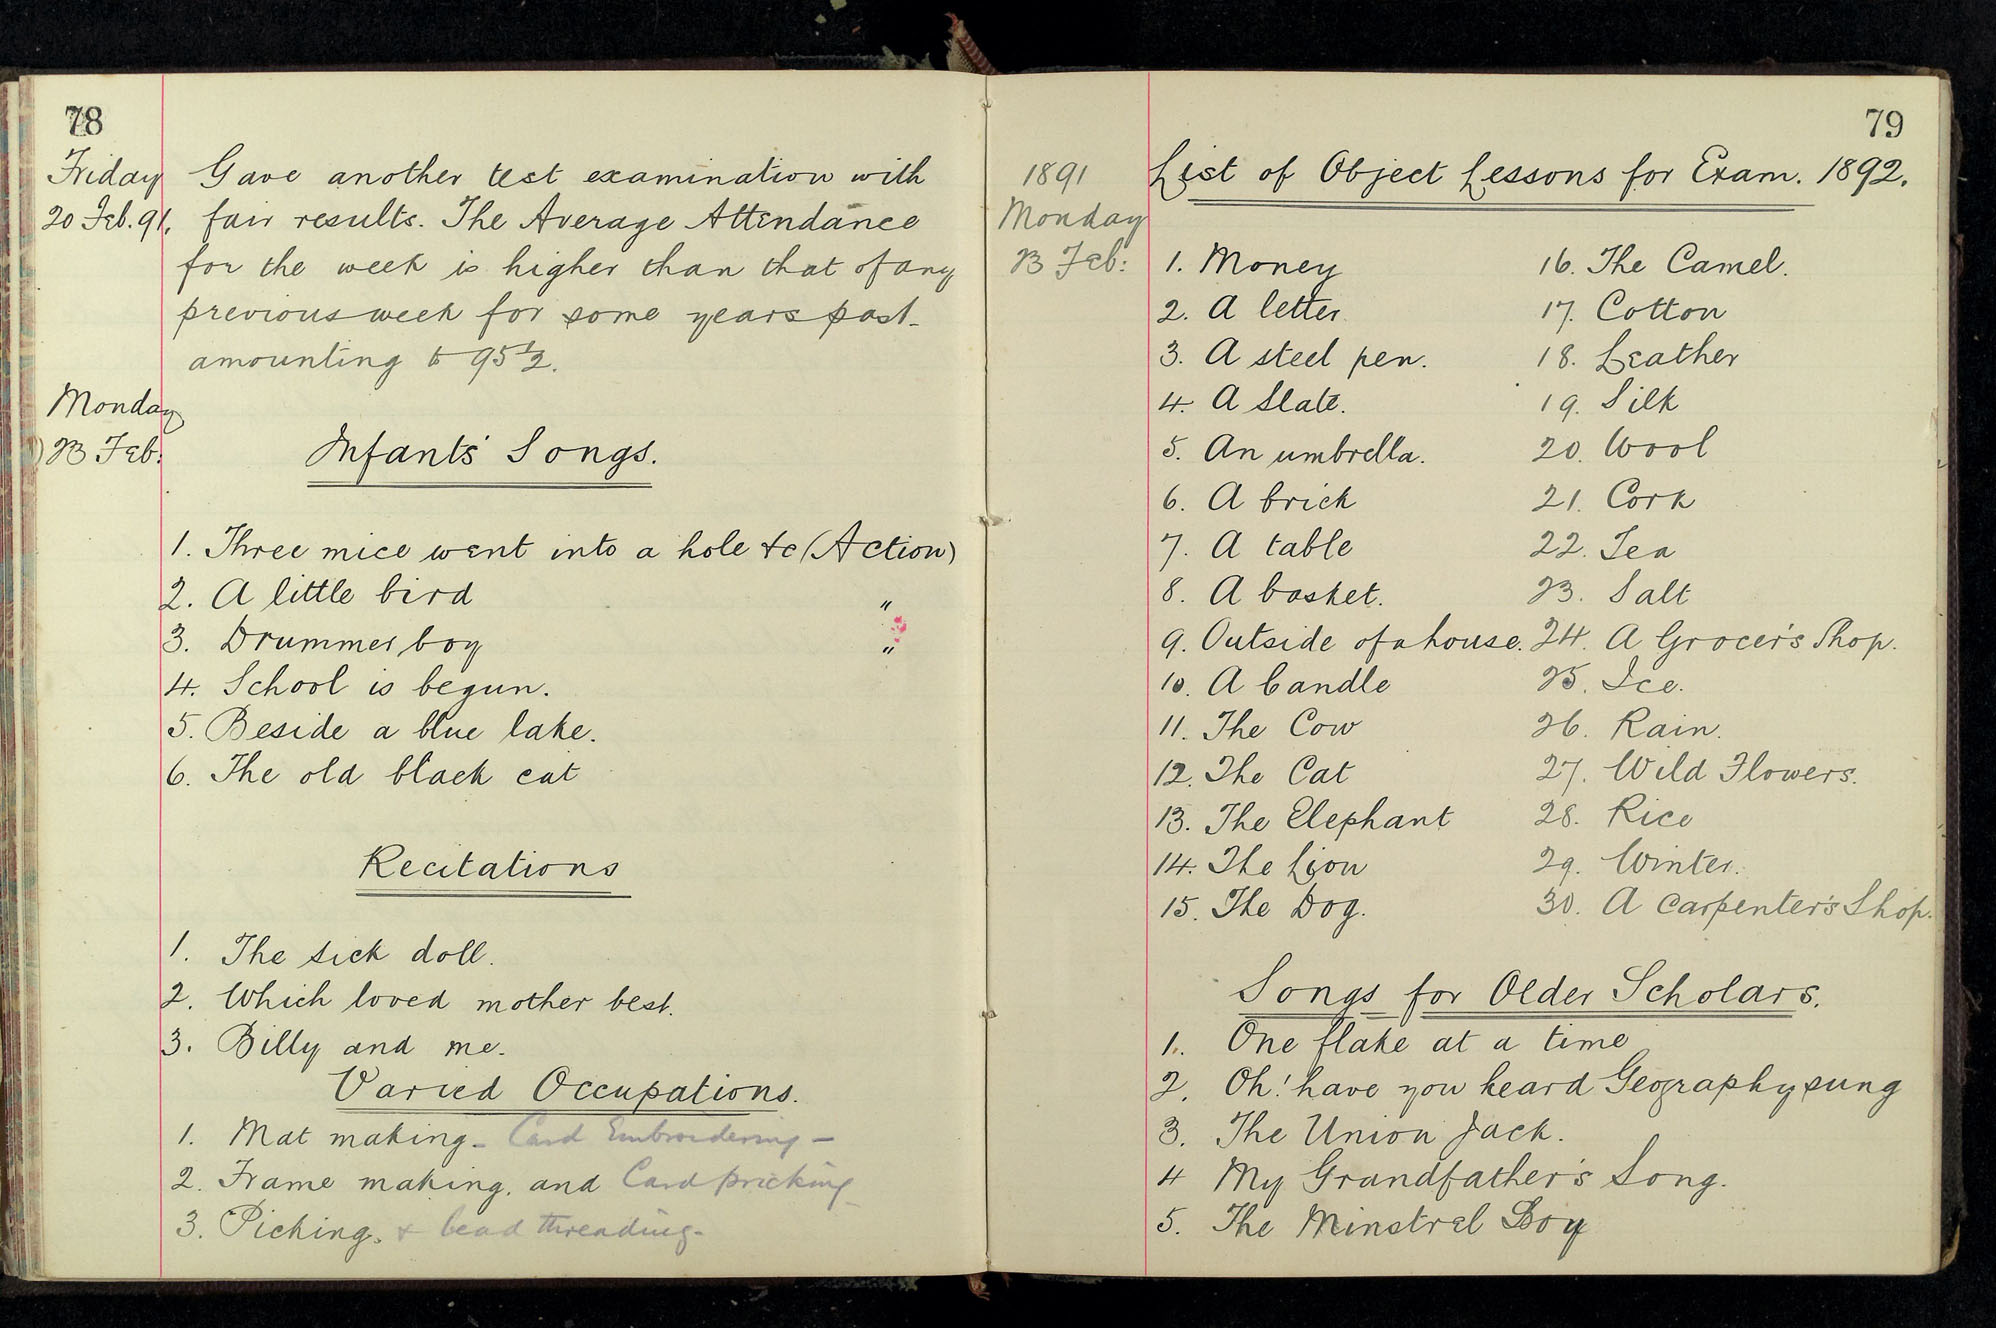 78
Friday Gave another test examination with
20 Feb. 91. fair results. The Average Attendance
for the week is higher than that of any
previous week for some years past-
amounting to 95½.
Monday
23 Feb: Infants' Songs.
1. Three mice went into a hole &c (Action)
2. A little bird "
3. Drummer boy "
4. School is begun.
5. Beside a blue lake.
6. The old black cat
Recitations
1. The sick doll.
2. Which loved mother best.
3. Billy and me.
Varied Occupations.
1. Mat making- Card Embroidering -
2. Frame making, and Card pricking -
3. Picking. & bead threading-
79
1891 List of Object Lessons for Exam. 1892.
Monday
23 Feb: 1. Money 16. The Camel.
2. A letter 17. Cotton
3. A steel pen. 18. Leather
4. A Slate. 19. Silk
5. An umbrella. 20. Wool
6. A brick 21. Cork
7. A table 22. Tea
8. A basket. 23. Salt
9. Outside of a house. 24. A Grocer's Shop.
10. A Candle 25. Ice.
11. The Cow 26. Rain.
12. The Cat 27. Wild Flowers.
13. The Elephant 28. Rice
14. The Lion 29. Winter.
15. The Dog. 30. A Carpenter's Shop.
Songs for Older Scholars.
1. One flake at a time
2. Oh! have you heard Geography sung
3. The Union Jack.
4 My Grandfather's Song.
5. The Minstrel Boy